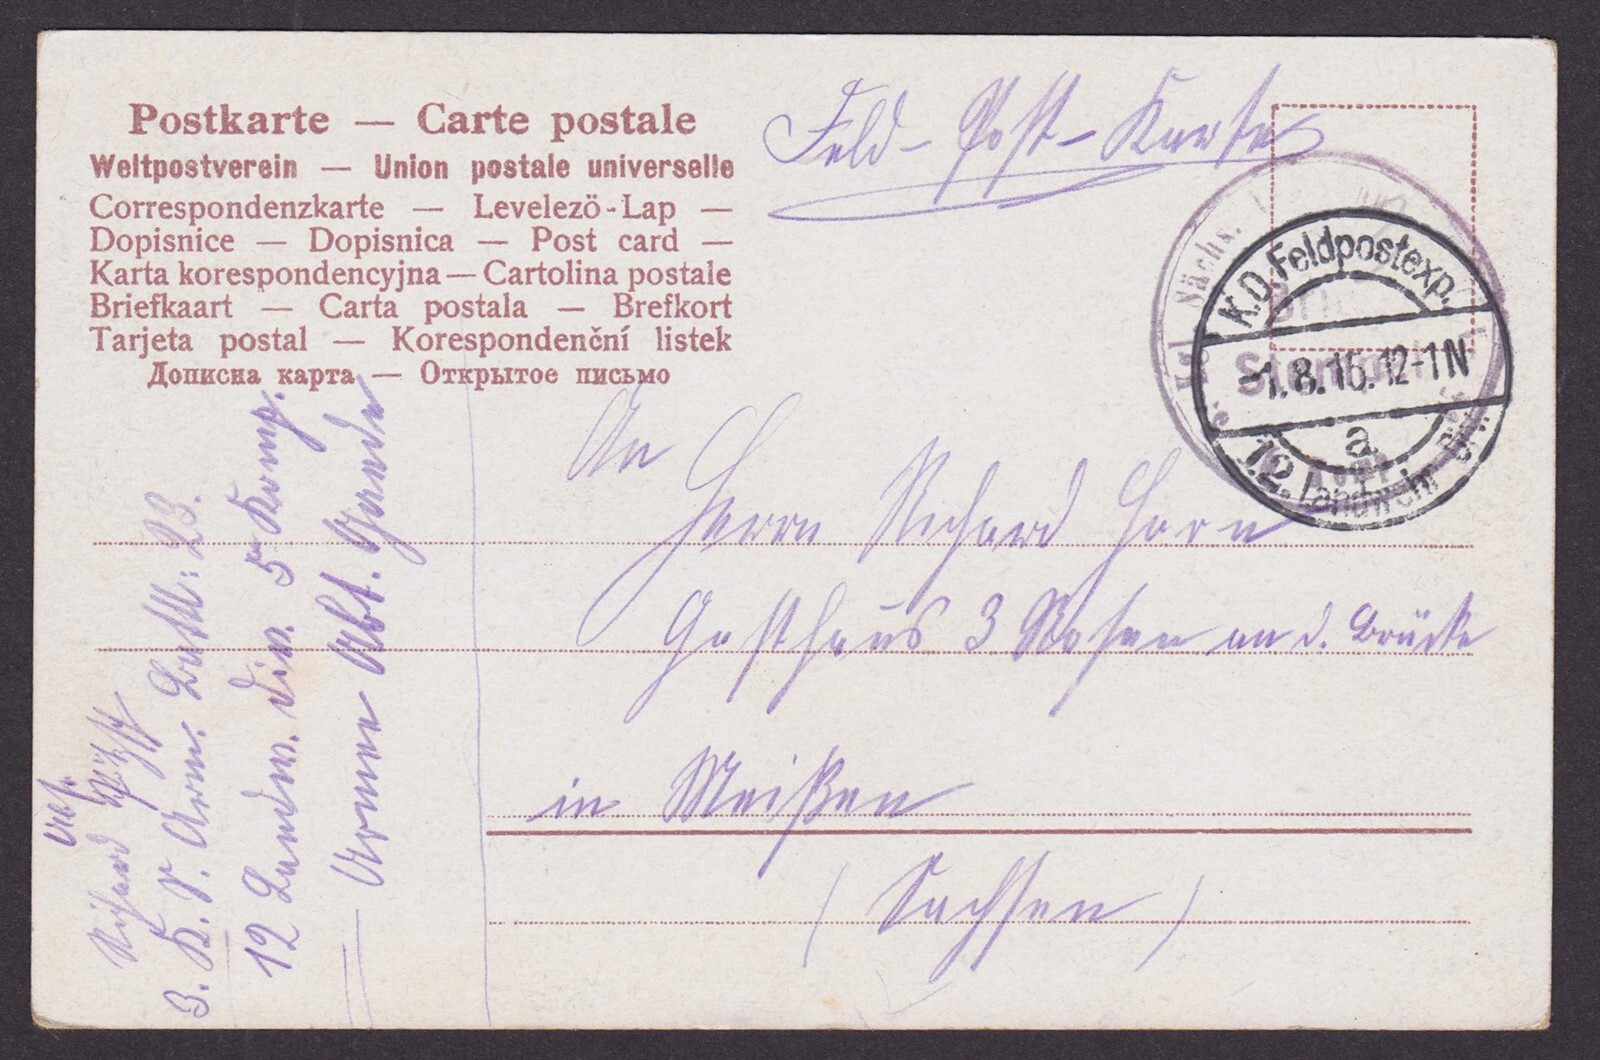 Postkarte — Carte postale
Weltpostverein — Union postale universelle
Correspondenzkarte — Levelezö-Lap —
Dopisnice — Dopisnica — Post card —
Karta korespondencyjna — Cartolina postale
Briefkaart — Carta postala — Brefkort
Tarjeta postal — Korespondenční listek
Дописна карта — Открытое письмо
Feld-Post-Karte
Kgl. Sächs.
K.D. Feldpostexp.
-1.8.15. 12-1N
a
12. Landwehr Div.
An
Herrn Richard Horn
Gasthaus 3 Rosen an d. Brücke
in Meißen
(Sachsen)
Richard
3. K. S. Arm. Batl: 23.
12 Landw. Div. 5 Komp.
Arme Abt.